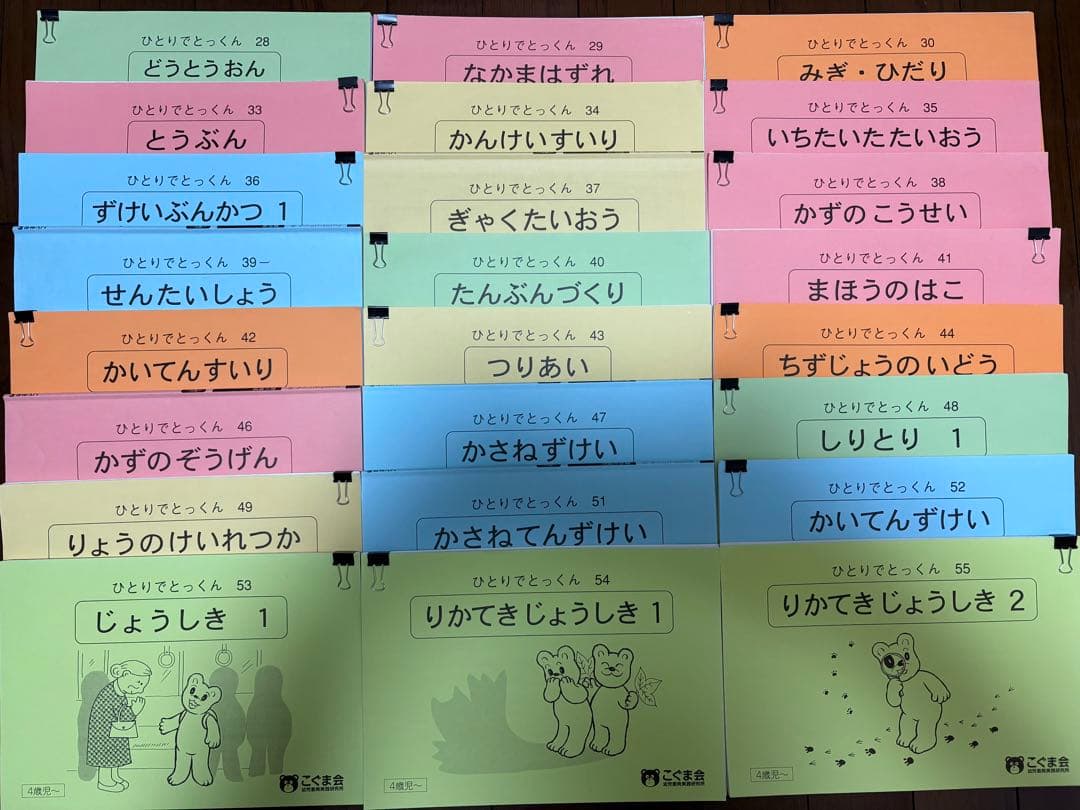 ひとりでとっくん 28
どうとうおん
ひとりでとっくん 29
なかまはずれ
ひとりでとっくん 30
みぎ・ひだり
ひとりでとっくん 33
とうぶん
ひとりでとっくん 34
かんけいすいり
ひとりでとっくん 35
いちたいたたいおう
ひとりでとっくん 36
ずけいぶんかつ 1
ひとりでとっくん 37
ぎゃくたいおう
ひとりでとっくん 38
かずのこうせい
ひとりでとっくん 39－
せんたいしょう
ひとりでとっくん 40
たんぶんづくり
ひとりでとっくん 41
まほうのはこ
ひとりでとっくん 42
かいてんすいり
ひとりでとっくん 43
つりあい
ひとりでとっくん 44
ちずじょうのいどう
ひとりでとっくん 46
かずのぞうげん
ひとりでとっくん 47
かさねずけい
ひとりでとっくん 48
しりとり 1
ひとりでとっくん 49
りょうのけいれつか
ひとりでとっくん 51
かさねてんずけい
ひとりでとっくん 52
かいてんずけい
ひとりでとっくん 53
じょうしき 1
4歳児～
こぐま会
幼児教育実践研究所
ひとりでとっくん 54
りかてきじょうしき 1
こぐま会
幼児教育実践研究所
ひとりでとっくん 55
りかてきじょうしき 2
4歳児～
こぐま会
幼児教育実践研究所